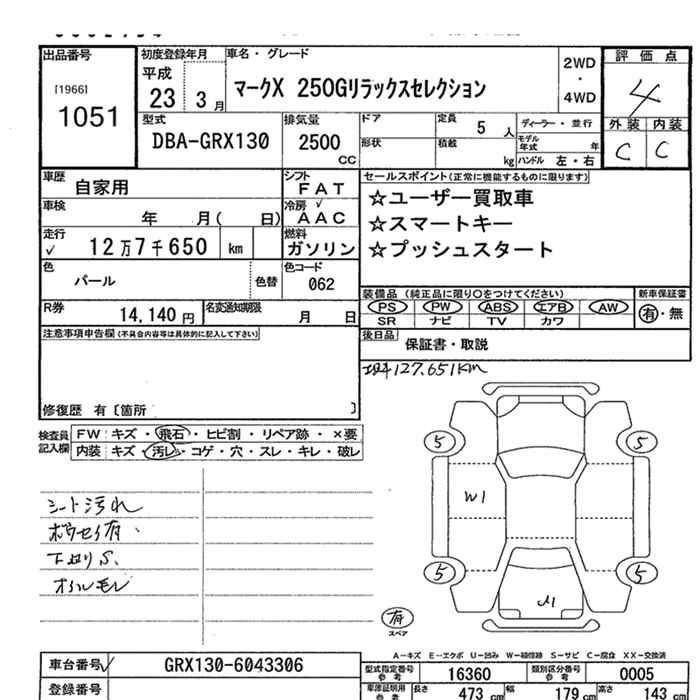 出品番号 初度登録年月 車名・グレード 評価点
[1966] 平成 2WD
1051 23 3月 マークX 250Gリラックスセレクション ・ 4
4WD
型式 排気量 ドア 定員 5 人 ディーラー・並行 外装 内装
DBA-GRX130 2500 形状 積載 モデル年式 年 C C
CC kg ハンドル 左・右
車歴 自家用 シフト FAT セールスポイント(正常に機能するものに限ります)
車検 年 月( 日) 冷房 AAC ☆ユーザー買取車
☆スマートキー
走行 12万7千650 km 燃料 ガソリン ☆プッシュスタート
色 パール 色替 色コード 062
装備品 (純正品に限り○をつけてください) 新車保証書
R券 14,140円 名変通知期限 月 日 PS PW ABS エアB AW 有・無
SR ナビ TV カワ
注意事項申告欄(不具合内容等は具体的に記入して下さい) 後日品 保証書・取説
127,651KM
修復歴 有〔箇所 〕
検査員記入欄 FW キズ・飛石・ヒビ割・リペア跡・×要
内装 キズ・汚レ・コゲ・穴・スレ・キレ・破レ
5 5
W1
シート汚れ
ボウセイ有
下廻りS.
オイルモレ
5 5
U1
有
スペア
A-キズ E-エクボ U-凹み W-補修跡 S-サビ C-腐食 XX-交換済
車台番号 GRX130-6043306 型式指定番号参考 16360 類別区分番号参考 0005
登録番号 車庫証明用参考 長さ 473 cm 幅 179 cm 高さ 143 cm